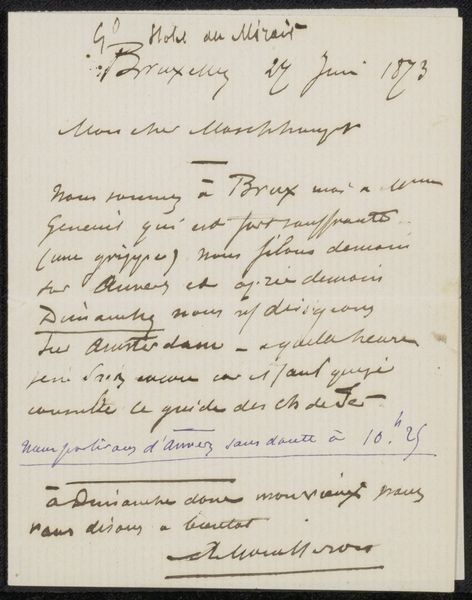 Gd Hotel du Miroir
Bruxelles 27 Juin 1873
Mon cher
Nous sommes à Brux moi &
qui est fort souffrante
(une grippe) nous filons demain
sur Anvers et après demain
Dimanche nous
sur Amsterdam – a quelle heure
encore car il faut que je
consulte le guide des ch de fer
Nous partirons d'Anvers sans doute à 10.h 25
à Dimanche donc mon vieux nous
vous disons a bientot